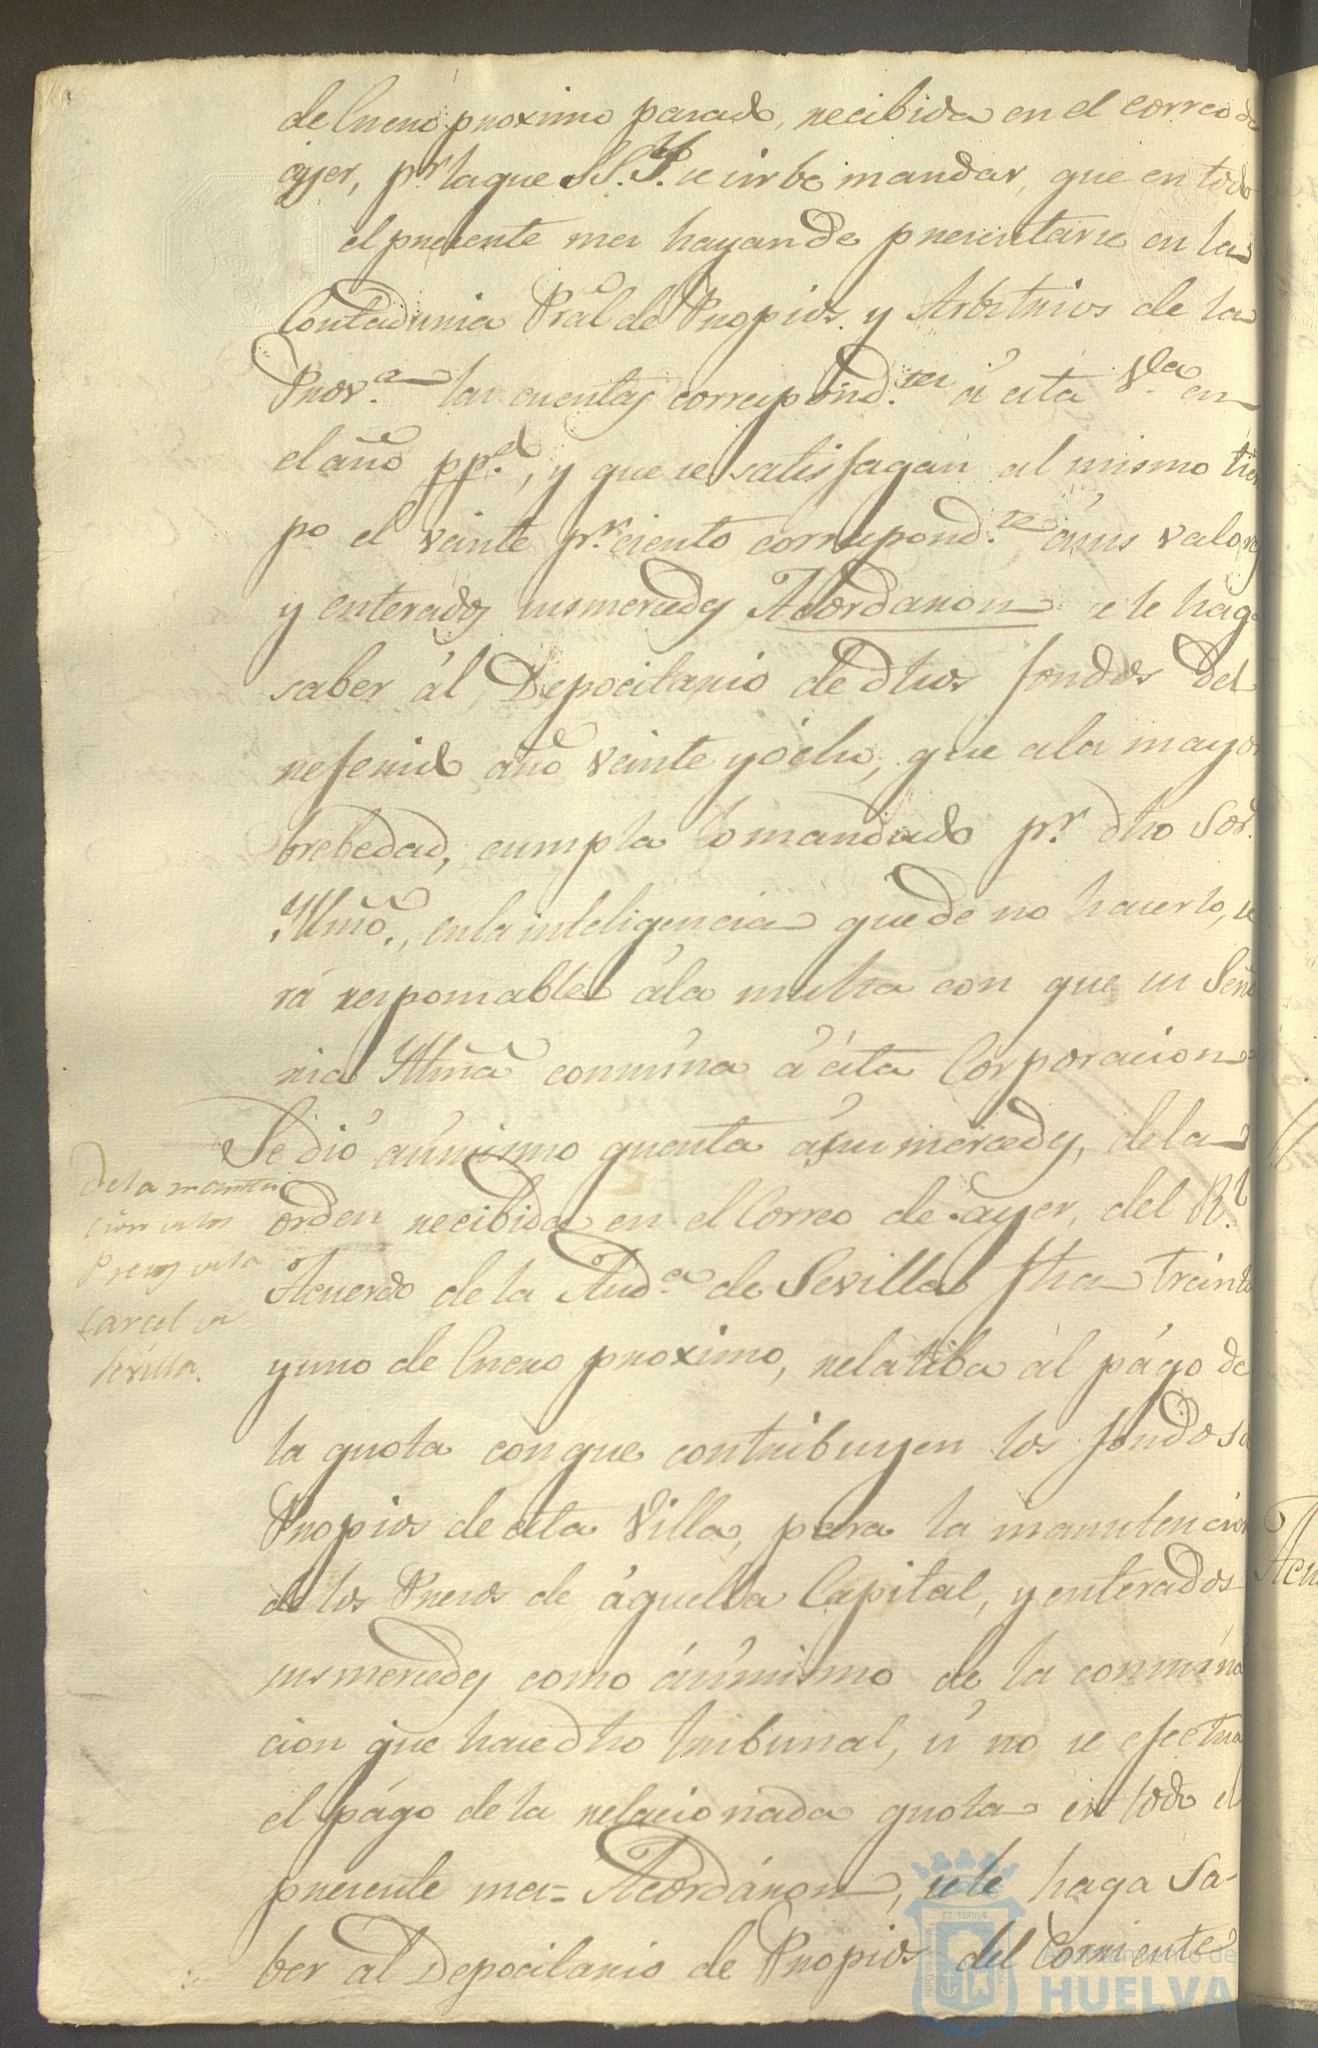 de Enero proximo pasado, recibida en el correo de
ayer, p.r la que S.S.Y. se sirbe mandar, que en todo
el presente mes hayan de presentarse en la
Contaduria Pral de Propios y Arbitrios de la
Prov.a las cuentas correspond.tes á esta V.lla en
el año pp.do, y que se satisfagan al mismo tiem
po el veinte p.r ciento correspond.te á sus valores
y enterados sus mercedes Acordaron se le haga
saber ál Depocitario de dhos fondos del
referido año veinte y ocho, que a la mayor
brebedad, cumpla lo mandado p.r dho Sor.
Yllmo., en la inteligencia que de no hacerlo, se
rá responsable á la multa con que su Seño
ria Yllma conmina á esta Corporacion
Se dió asimismo quenta á sus mercedes, de la
orden recibida en el Correo de ayer, del R.l
Acuerdo de la Aud.a de Sevilla fha treinta
y uno de Enero proximo, relatiba al págo de
la quota con que contribuyen los fondos de
Propios de esta Villa, para la manutencion
de los Presos de áquella Capital, y enterados
sus mercedes como ásimismo de la conmina
cion que hace dho tribunal, si no se efectua
el págo de la relacionada quota en todo el
presente mes= Acordáron, se le haga Sa-
ber al Depocitario de Propios del Corriente
De la manten
cion de los
Presos de la
Carcel de
Sevilla.
Acu
Ayuntamiento de
HUELVA